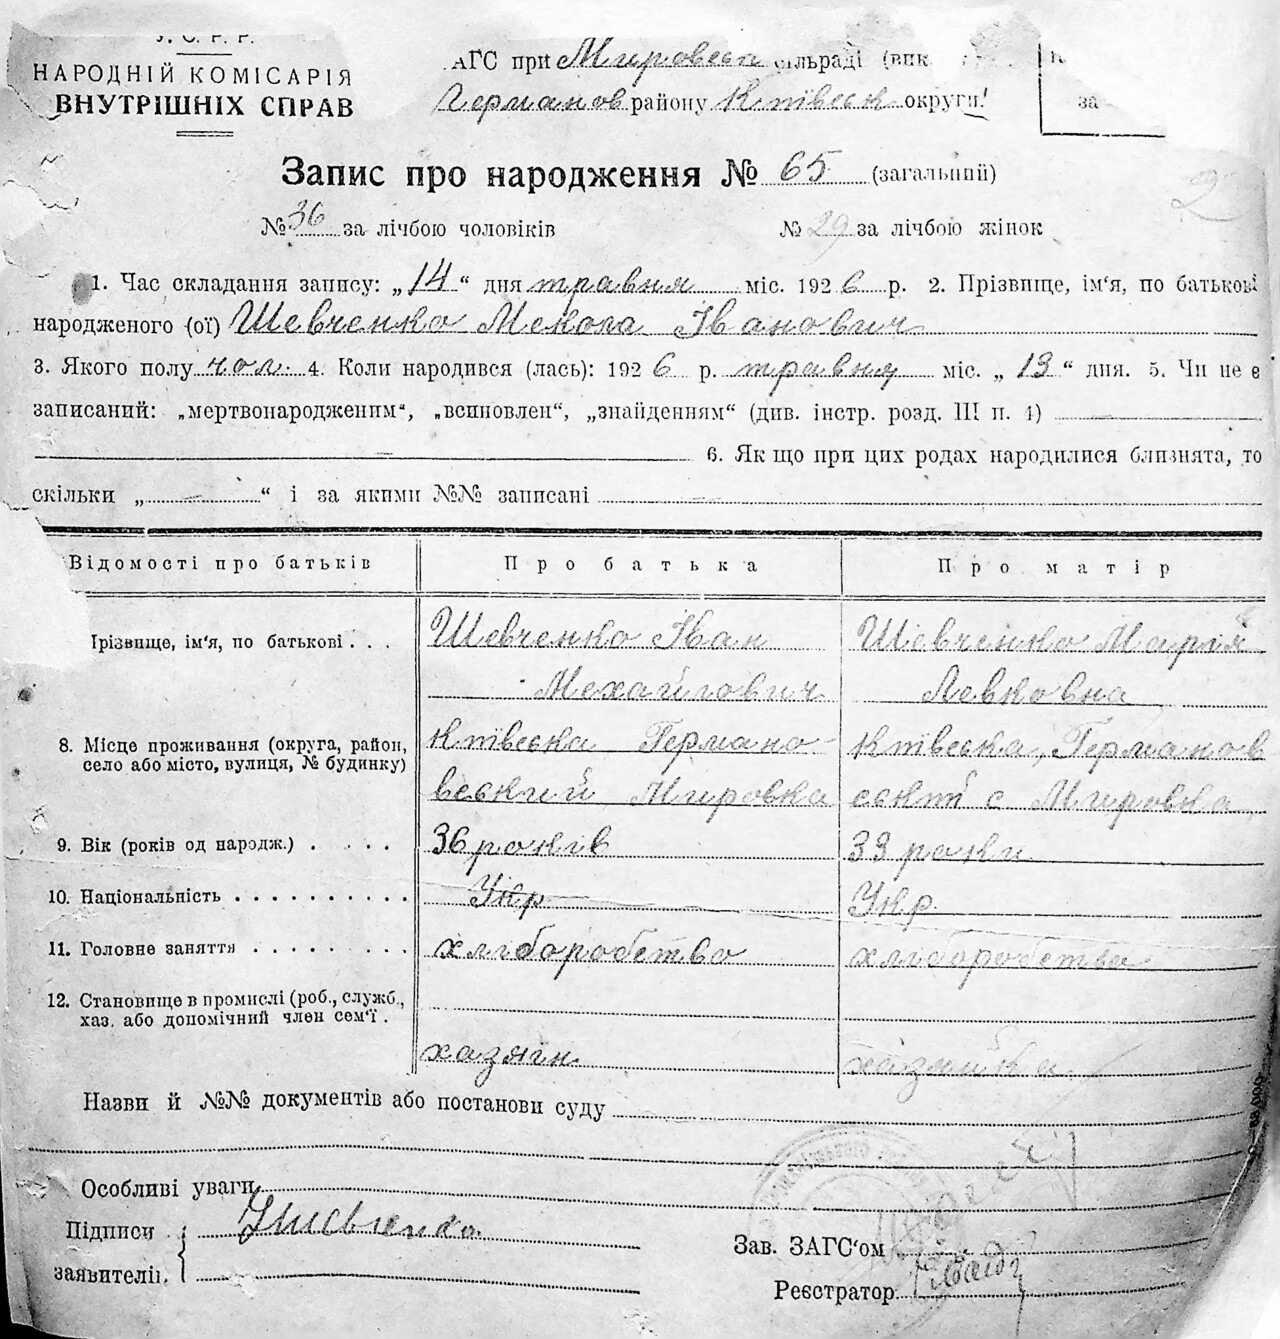 У. С. Р. Р.
НАРОДНІЙ КОМІСАРІЯ
ВНУТРІШНІХ СПРАВ
АГС при Мировськ сільраді (вик
Германов району Київськ округи
за
Запис про народження № 65 (загальний)
№ 36 за лічбою чоловіків № 29 за лічбою жінок
2
1. Час складання запису: „14“ дня травня міс. 1926 р. 2. Прізвище, ім'я, по батькові
народженого (ої) Шевченко Мекола Іванович
3. Якого полу чол. 4. Коли народився (лась): 1926 р. травня міс. „13“ дня. 5. Чи не є
записаний: „мертвонародженим“, „всиновлен“, „знайденням“ (див. інстр. розд. III п. 4)
6. Як що при цих родах народилися близнята, то
скільки „ — “ і за якими №№ записані
Відомості про батьків Про батька Про матір
різвище, ім'я, по батькові . . . Шевченко Іван Шевченко Марія
Мехайлович Левковна
8. Місце проживання (округа, район, село або місто, вулиця, № будинку) Київська Германо- Київська, Германов
вський Мировка ський с Мировка
9. Вік (років од народж.) . . . . 36 років 33 роки
10. Національність . . . . . . . . . . Укр Укр
11. Головне заняття . . . . . . . . хліборобство хліборобство
12. Становище в промислі (роб., служб.,
хаз. або допомічний член сем'ї .
хазяїн хазяйка
Назви й №№ документів або постанови суду
Особливі уваги
Підписи
заявителів
Зав. ЗАГС'ом
Реєстратор